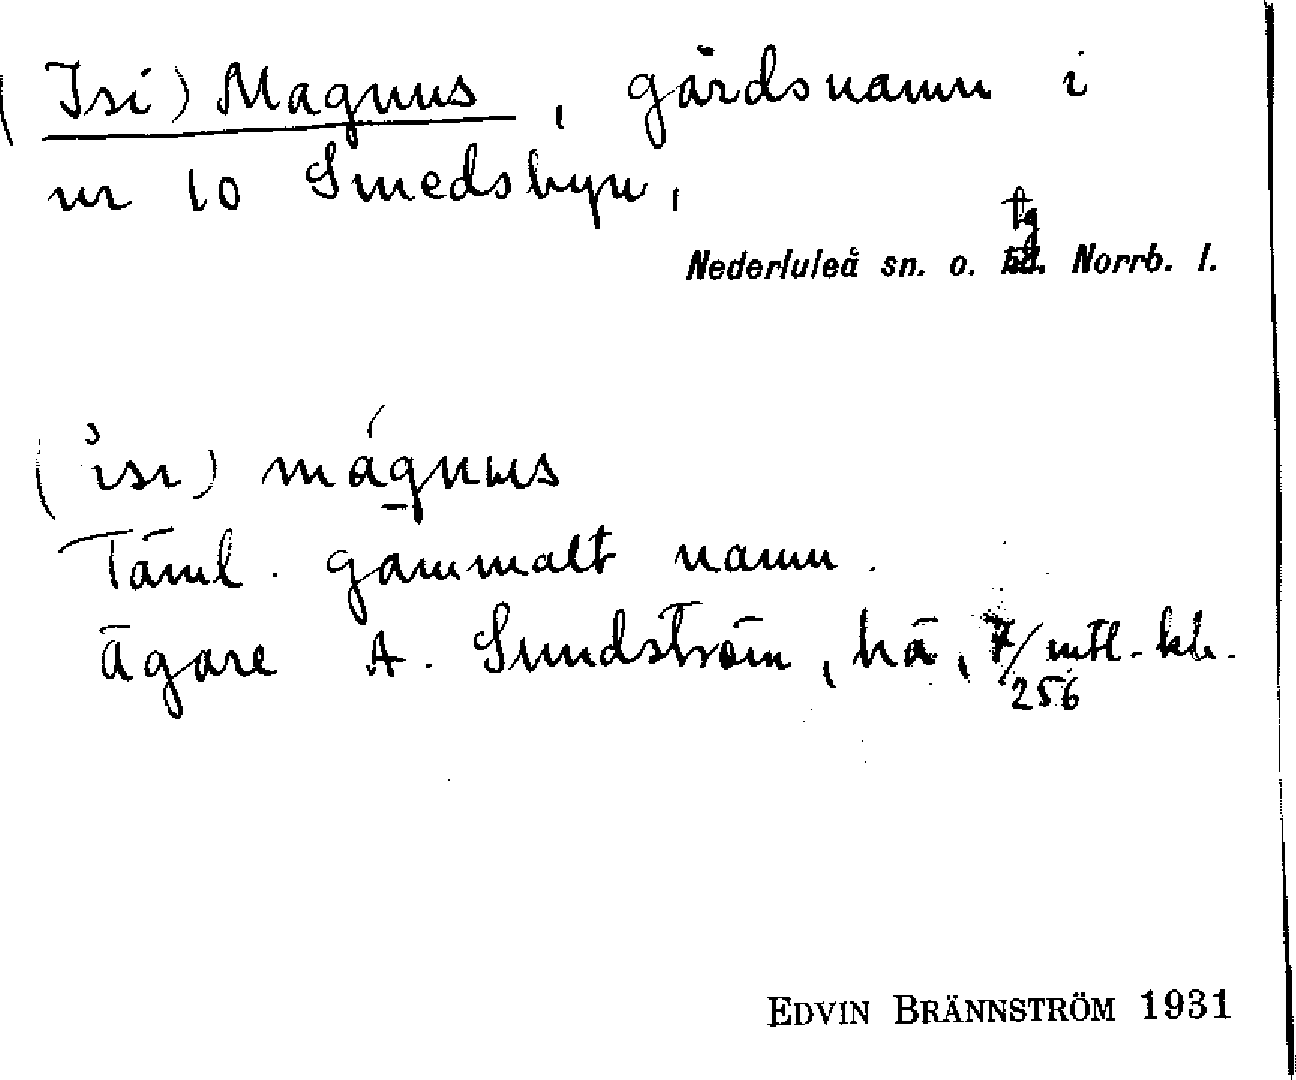 (Isi) Magnus, gårdsnamn i
nr 10 Smedsbyn,
tg
Nederluleå sn. o. hd. Norrb. l.
(isı) mágnus
Täml. gammalt namn.
Ägare A. Sundström, hä, 7/256 mtl. kb.
EDVIN BRÄNNSTRÖM 1931